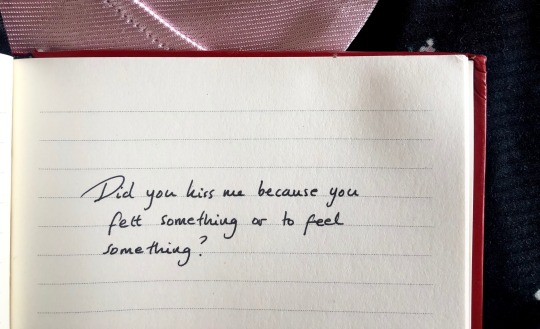 Did you kiss me because you
felt something or to feel
something?